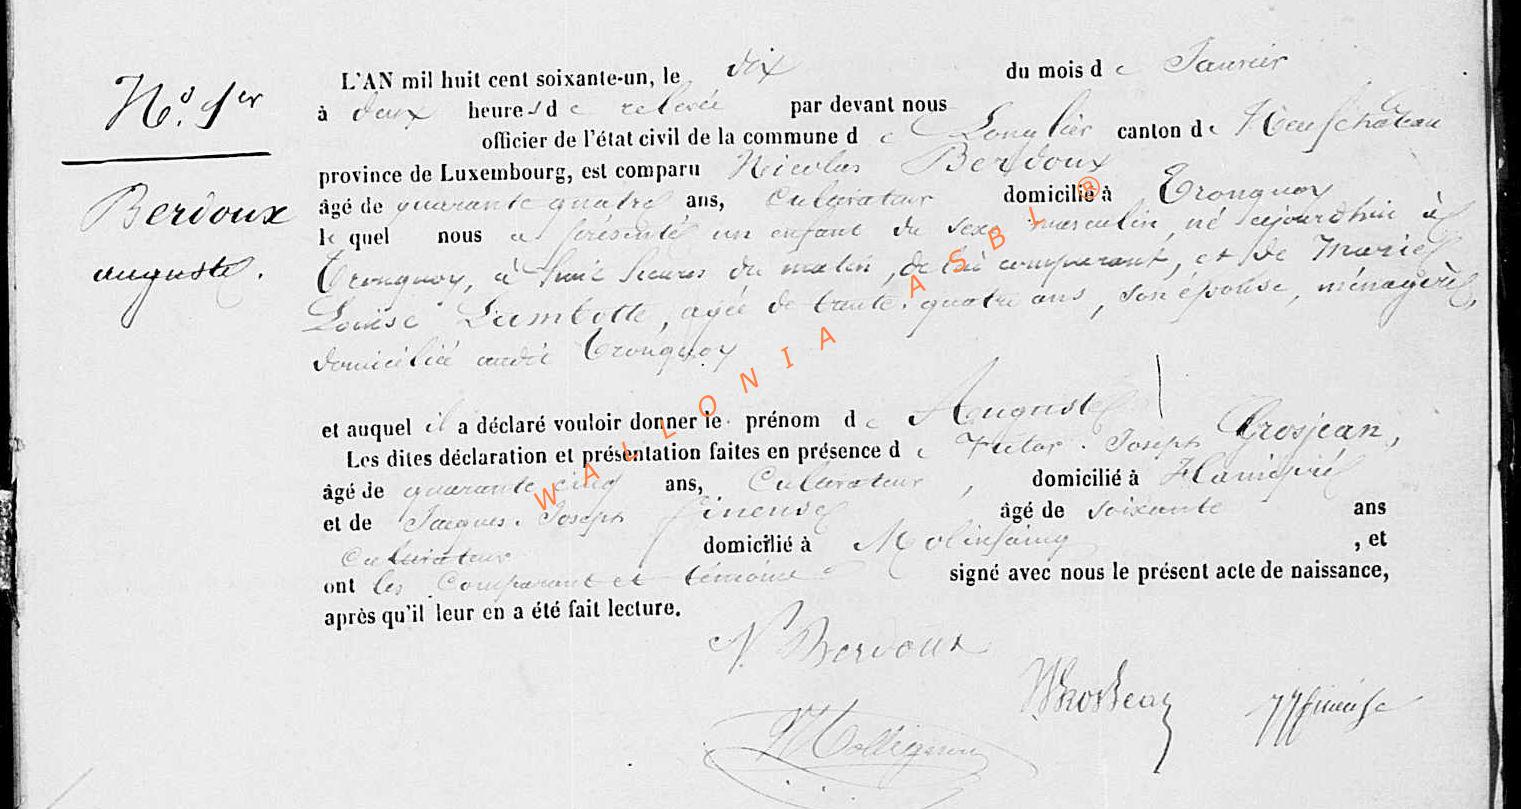 N.o 1er
Berdoux
auguste.
L'AN mil huit cent soixante-un, le dix du mois de Janvier
à deux heures de relevée par devant nous
officier de l'état civil de la commune de Longlier canton de Neufchâteau
province de Luxembourg, est comparu Nicolas Berdoux
âgé de quarante quatre ans, Cultivateur domicilié à Tronquoy
lequel nous a présenté un enfant du sexe masculin, né aujourdhui à
Tronquoy, à huit heures du matin, de lui comparant, et de Marie
Louise Lambotte, agée de trente-quatre ans, son épouse, ménagère,
domiciliée audit Tronquoy
et auquel il a déclaré vouloir donner le prénom de Auguste
Les dites déclaration et présentation faites en présence de Victor-Joseph Grosjean,
âgé de quarante cinq ans, Cultivateur, domicilié à Hamipré
et de Jacques-Joseph Fineuse âgé de soixante ans
Cultivateur domicilié à Molinfaing, et
ont les Comparant et témoins signé avec nous le présent acte de naissance,
après qu'il leur en a été fait lecture.
N. Berdoux
Collignon
WALLONIA ASBL ®